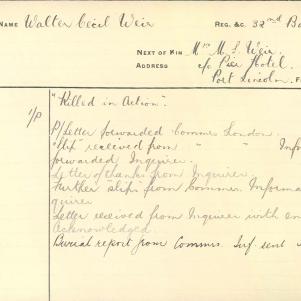 NAME Walter Cecil Weir REG. &C. 32nd Ba
NEXT OF KIN Mrs M. S. Weir.
ADDRESS c/o Pier Hotel.
Port Lincoln. F
"Killed in Action".
1/P P/Letter forwarded Commrs London.
"slip" received from " " Inf
forwarded Inquirer.
Letter of thanks from Inquirer.
Further "slip" from Commrs. Informa
quirer
Letter received from Inquirer with en
Acknowledged.
Burial report from Commrs. Inf. sent